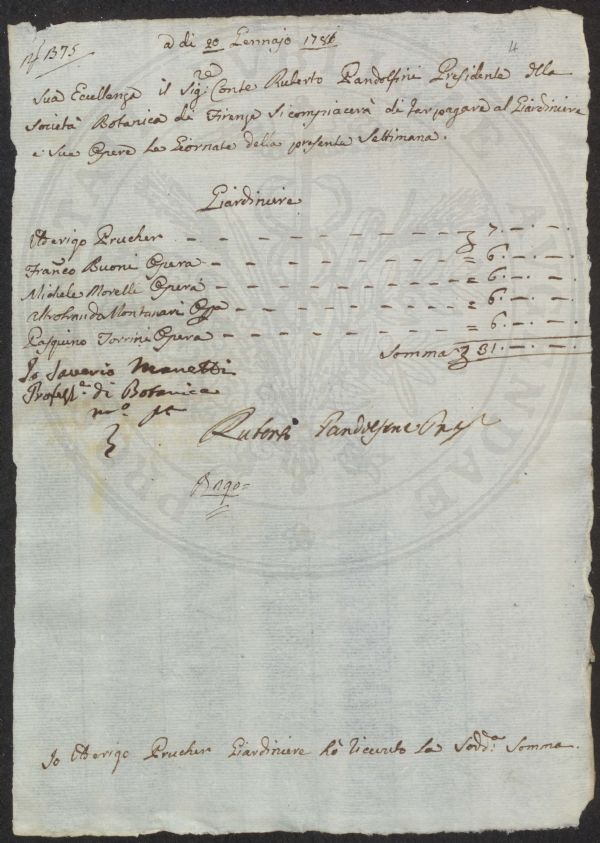 N° 1375
a di 20 Gennajo 1786
4
Sua Eccellenza il Sig:re Conte Ruberto Pandolfini Presidente della
Società Botanica di Firenze si compiacerà di far pagare al Giardiniere
e sue Opere le Giornate della presente Settimana.
Giardiniere
Arrigo Prucher - - - - - - - - 7. - . - .
Franco Buoni Opera - - - - - - - = 6. - . - .
Michele Morelli Opera - - - - - - - = 6. - . - .
Montanari Opa - - - - - - = 6. - . - .
Pasquino Torrini Opera - - - - - - = 6. - . - .
Somma 31. - . - .
Io Saverio Manetti
Profess.e di Botanica
m.o pa
Ruberto Pandolfini Pres.
Io Arrigo Prucher Giardiniere hò ricevuto la Sodd.a Somma.